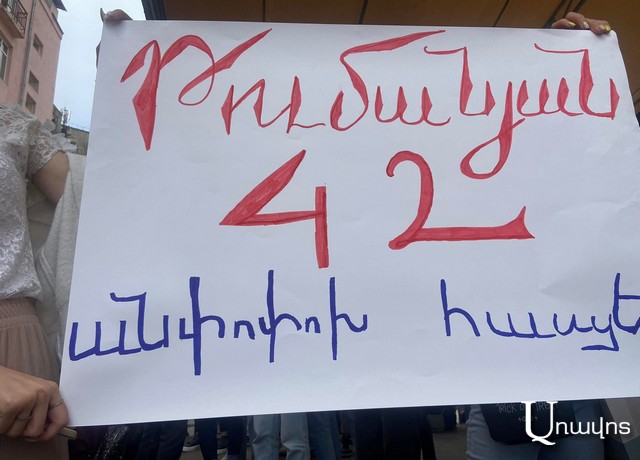 Թումանյան
42
անփոփոխ հասցե
Առավոտ